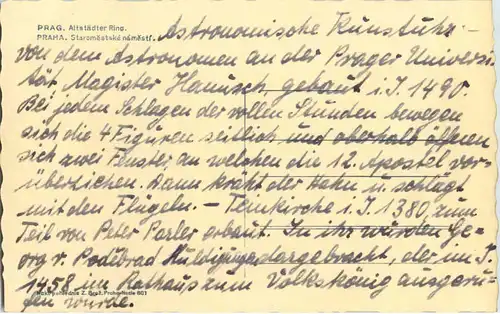 PRAG. Altstädter Ring.
PRAHA. Staroměstské náměstí.
Astronomische Kunstuhr:-
von dem Astronomen an der Prager Universi-
tät, Magister Hanusch, gebaut i. J. 1490.
Bei jedem Schlagen der vollen Stunden bewegen
sich die 4 Figuren seitlich und oberhalb öffnen
sich zwei Fenster, an welchen die 12. Apostel vor-
überziehen. Dann kräht der Hahn u. schlägt
mit den Flügeln. - Teinkirche i. J. 1380, zum
Teil von Peter Parler erbaut. In ihr wurden Ge-
org v. Podiebrad Huldigung dargebracht, der im J.
1458 im Rathaus zum Volkskönig ausgeru-
fen wurde.